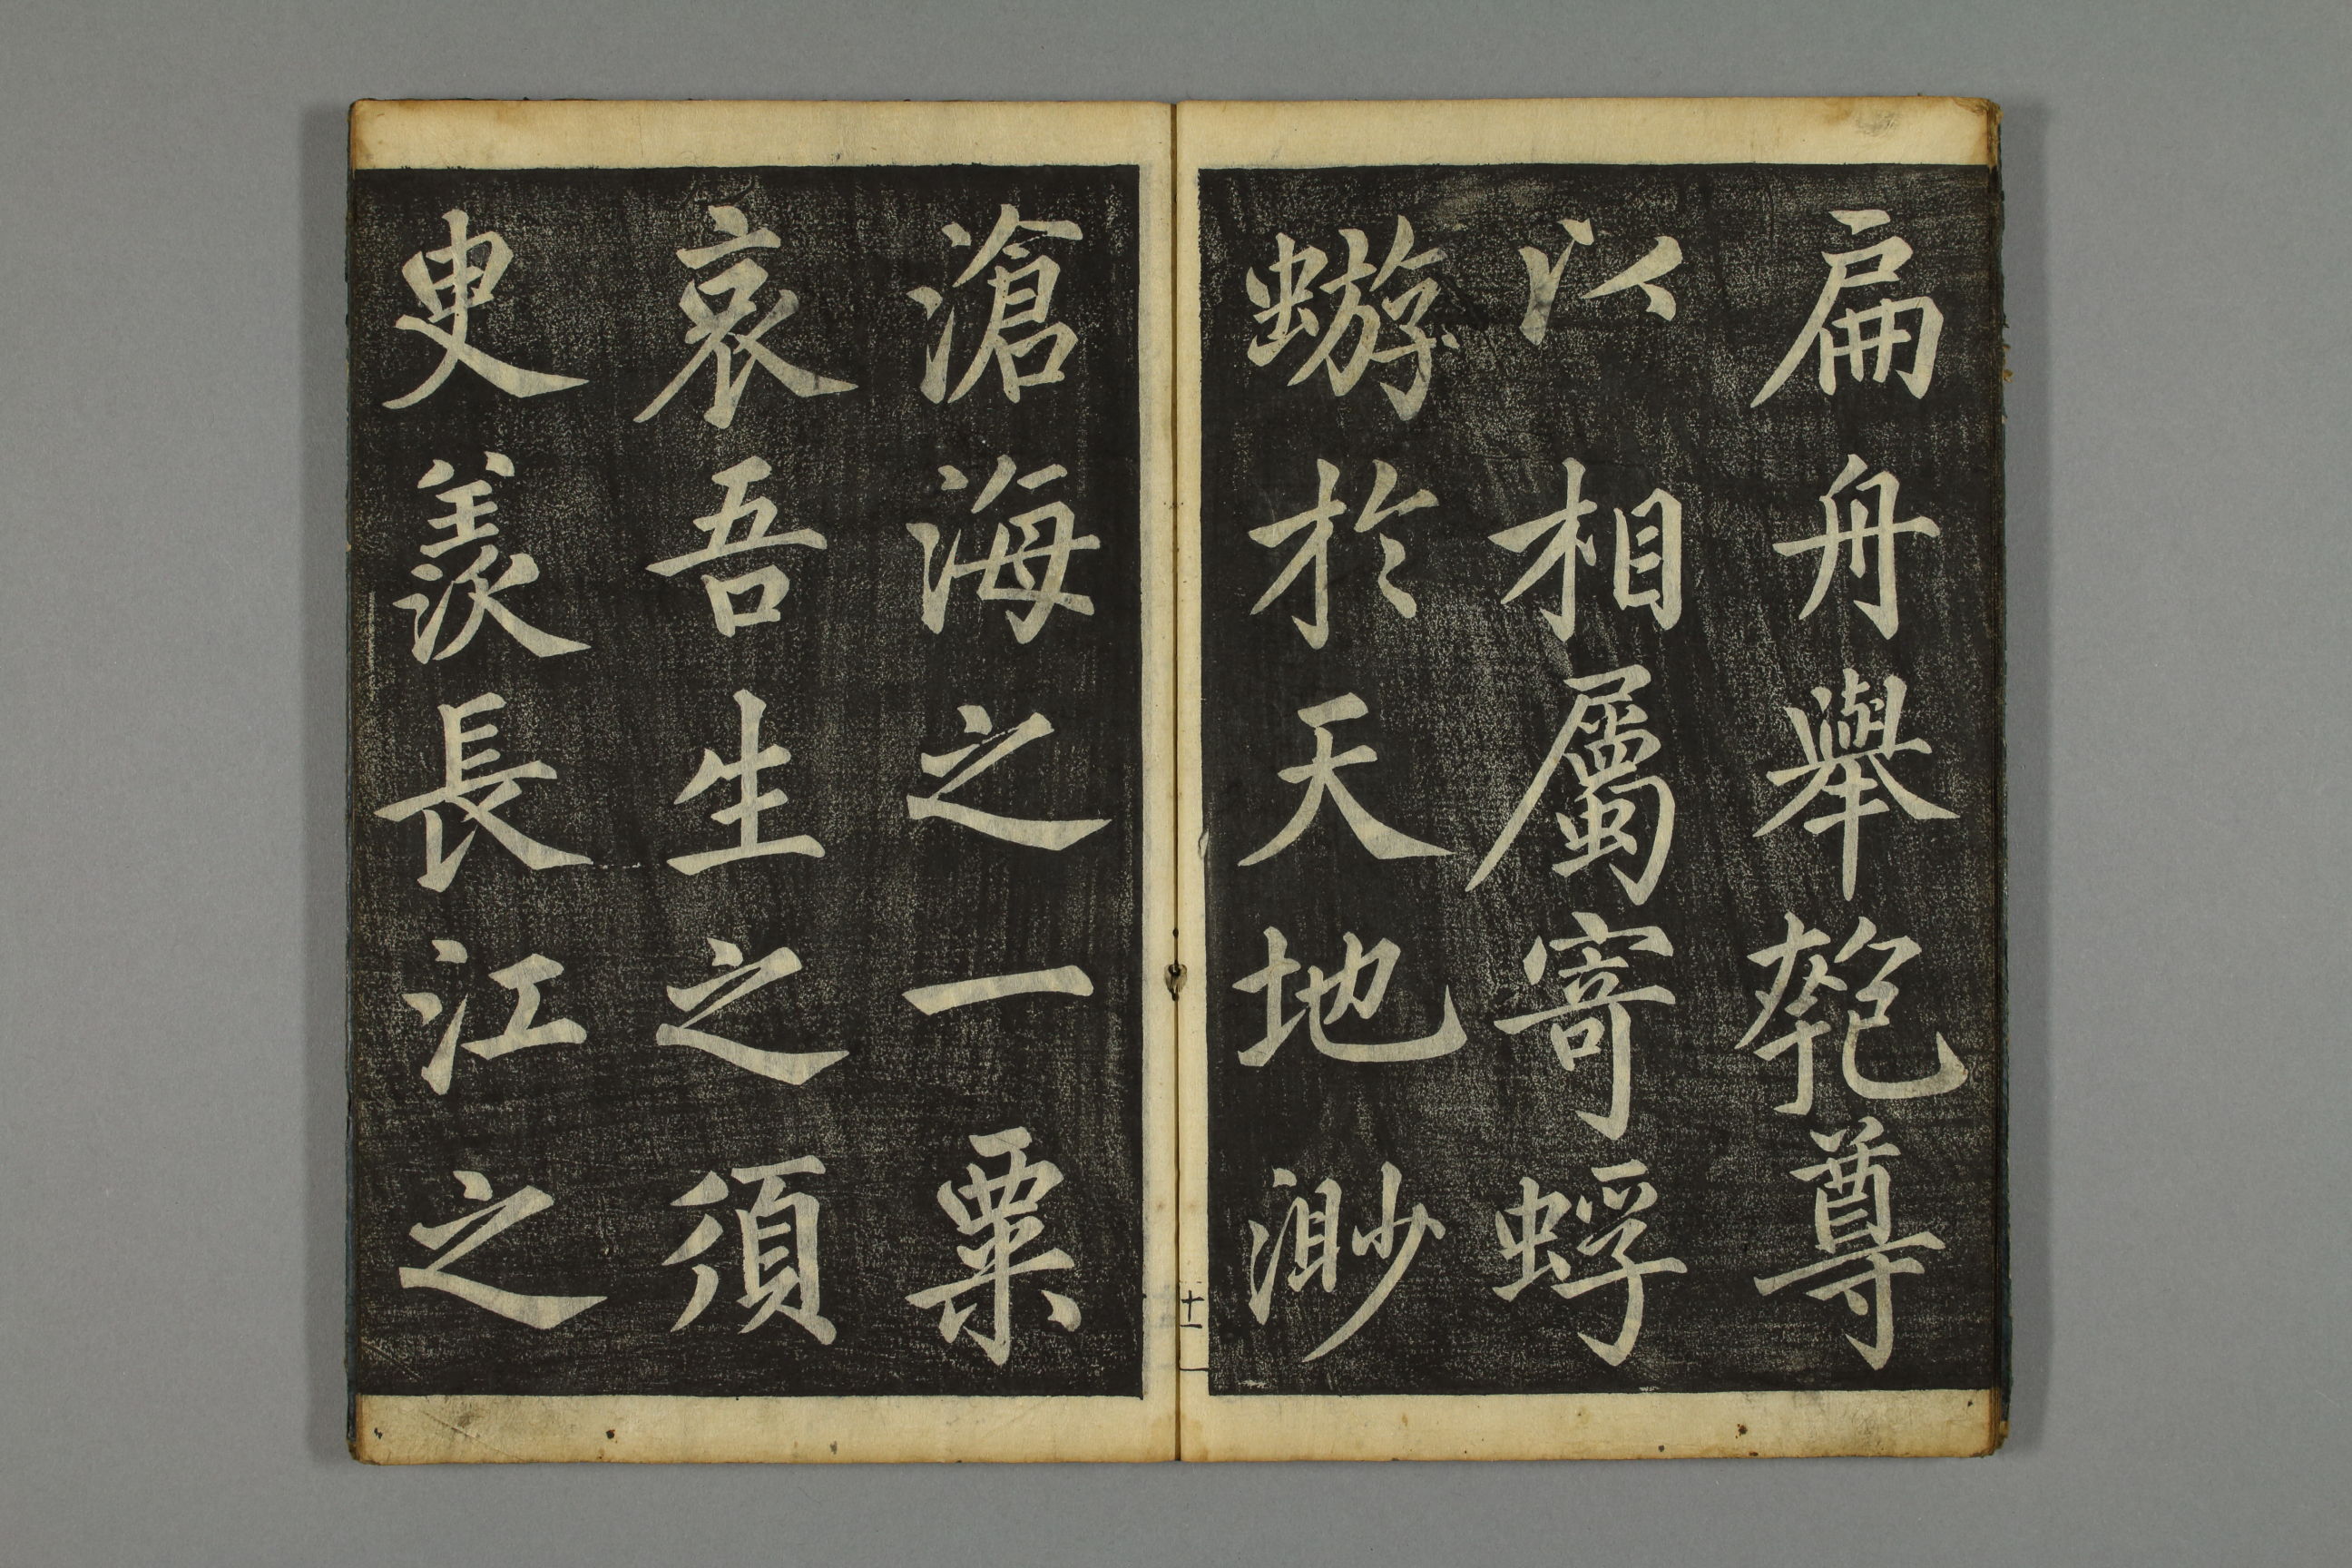 扁舟舉匏尊
以相屬寄蜉
蝣於天地渺
滄海之一粟
哀吾生之須
臾羨長江之
十一